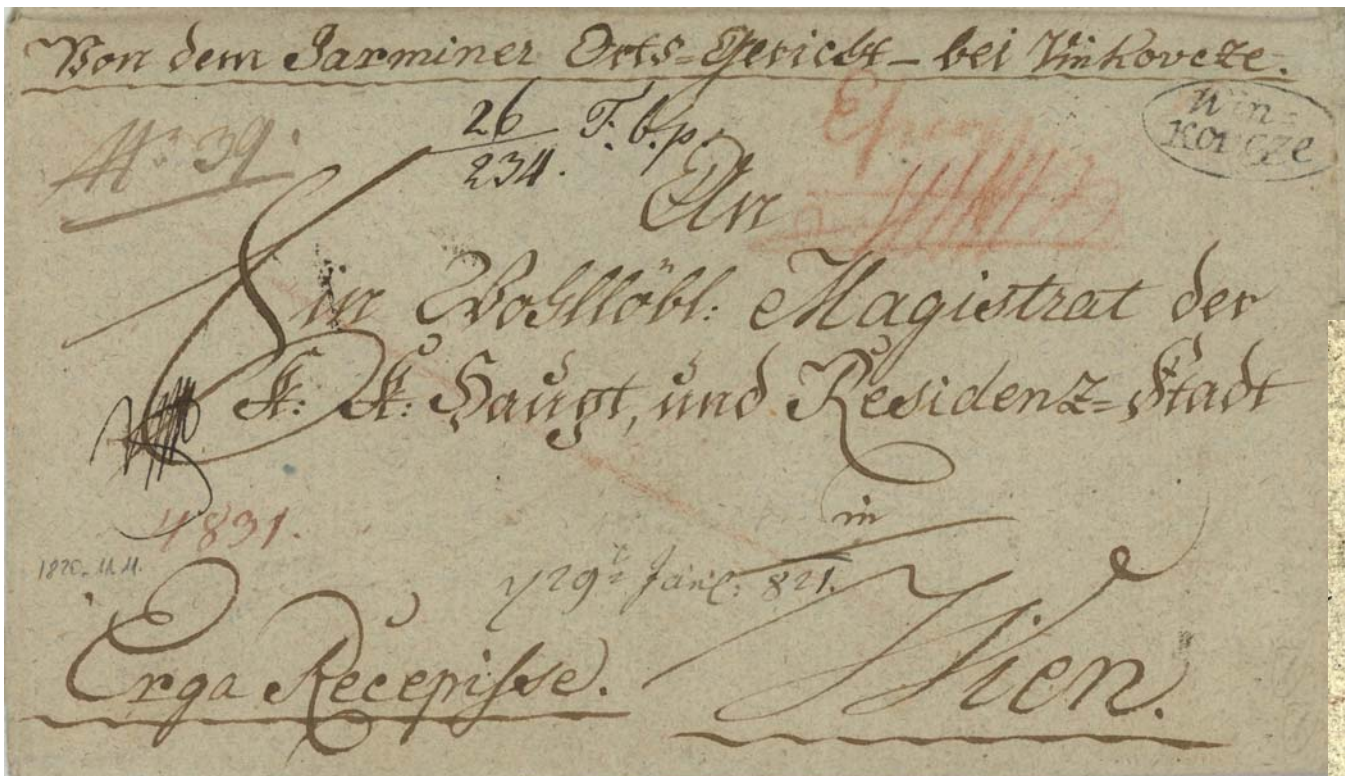 Von dem Jarminer Orts=Gericht – bei Vinkovcze.
Win=
kovcze
№ 39.
26 F. b. p.
234.
An
Ein Wohllöbl: Magistrat der
K: K: Haupt, und Residenz=Stadt
in
4831.
1820. 11. 11.
29t Jan: 821.
Erga Recepisse.
Wien.